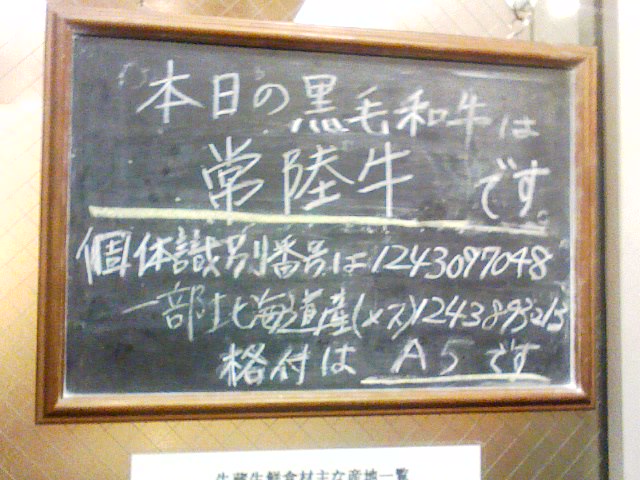 本日の黒毛和牛は
常陸牛 です。
個体識別番号は1243097048
一部北海道産(メス)1243895213
格付は A5 です
生蔵生鮮食材主な産地一覧